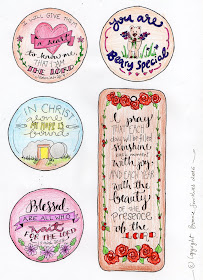 I WILL GIVE THEM
a heart
to know me
THAT I AM
THE LORD
You are
Beary Special
IN CHRIST
alone
MY HOPE IS
found
Blessed
ARE ALL WHO
wait
FOR THE LORD
I pray
THAT EACH
day is filled with
sunshine
each moment
with joy
AND EACH YEAR
with the
beauty
OF THE
PRESENCE
OF THE
LORD
© Copyright Bonnie